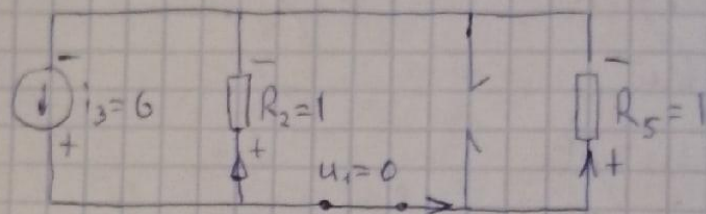 i₃=6
R₂=1
u₁=0
R₅=1